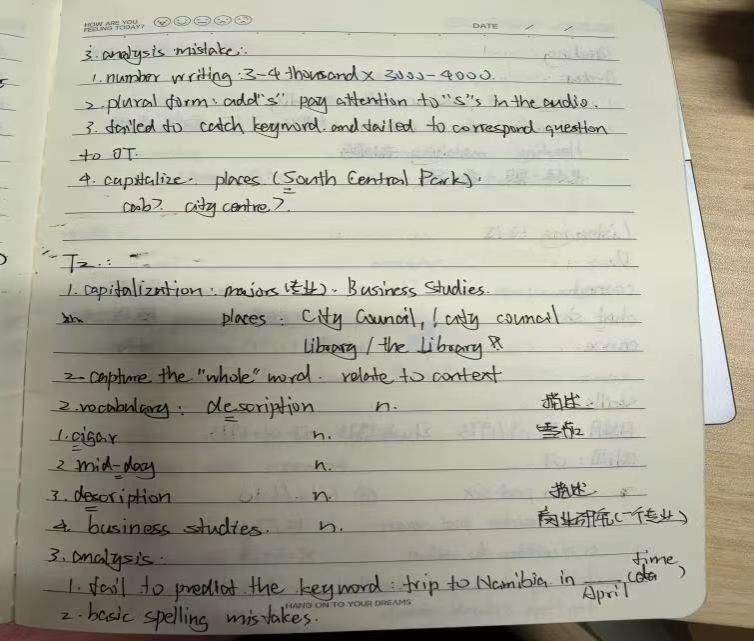 HOW ARE YOU
FEELING TODAY?
DATE / /
3. analysis mistake:
1. number writing: 3-4 thousand x 3000-4000.
2. plural form: add "s" pay attention to "s"s in the audio.
3. failed to catch keyword. and failed to correspond question
to OT.
4. capitalize. places (South Central Park).
city centre?.
T2.:
1. capitalization: majors (专业). Business Studies.
places: City Council, / city council
Library / the Library
2- capture the "whole" word. relate to context
2. vocabulary: description n. 描述.
1. cigar n. 雪茄
2 mid-day n.
3. description n. 描述
4. business studies. n. 商业研究(一个专业)
3. analysis.
1. fail to predict the keyword: trip to Namibia in ____ time,
April
HANG ON TO YOUR DREAMS
2. basic spelling mistakes.